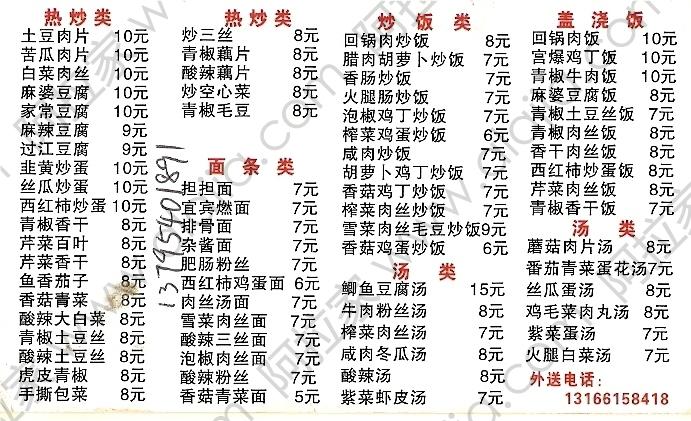 热炒类
土豆肉片 10元
苦瓜肉片 10元
白菜肉丝 10元
麻婆豆腐 10元
家常豆腐 10元
麻辣豆腐 9元
过江豆腐 9元
韭黄炒蛋 10元
丝瓜炒蛋 10元
西红柿炒蛋 10元
青椒香干 8元
芹菜百叶 8元
芹菜香干 8元
鱼香茄子 8元
香菇青菜 8元
酸辣大白菜 8元
青椒土豆丝 8元
酸辣土豆丝 8元
虎皮青椒 8元
手撕包菜 8元
热炒类
炒三丝 8元
青椒藕片 8元
酸辣藕片 8元
炒空心菜 8元
青椒毛豆 8元
面条类
担担面 7元
宜宾燃面 7元
排骨面 7元
杂酱面 7元
肥肠粉丝 7元
西红柿鸡蛋面 6元
肉丝汤面 7元
雪菜肉丝面 7元
酸辣三丝面 7元
泡椒肉丝面 7元
酸辣粉丝 7元
香菇青菜面 5元
13795401891
炒饭类
回锅肉炒饭 8元
腊肉胡萝卜炒饭 7元
香肠炒饭 7元
火腿肠炒饭 7元
泡椒鸡丁炒饭 7元
榨菜鸡蛋炒饭 6元
咸肉炒饭 7元
胡萝卜鸡丁炒饭 7元
香菇鸡丁炒饭 7元
榨菜肉丝炒饭 7元
雪菜肉丝毛豆炒饭 9元
香菇鸡蛋炒饭 6元
汤类
鲫鱼豆腐汤 15元
牛肉粉丝汤 8元
榨菜肉丝汤 7元
咸肉冬瓜汤 8元
酸辣汤 8元
紫菜虾皮汤 7元
盖浇饭
回锅肉饭 10元
宫爆鸡丁饭 10元
青椒牛肉饭 10元
麻婆豆腐饭 8元
青椒土豆丝饭 7元
青椒肉丝饭 8元
香干肉丝饭 8元
西红柿炒蛋饭 8元
芹菜肉丝饭 8元
青椒香干饭 7元
汤类
蘑菇肉片汤 8元
番茄青菜蛋花汤 7元
丝瓜蛋汤 8元
鸡毛菜肉丸汤 8元
紫菜蛋汤 7元
火腿白菜汤 7元
外送电话：
13166158418